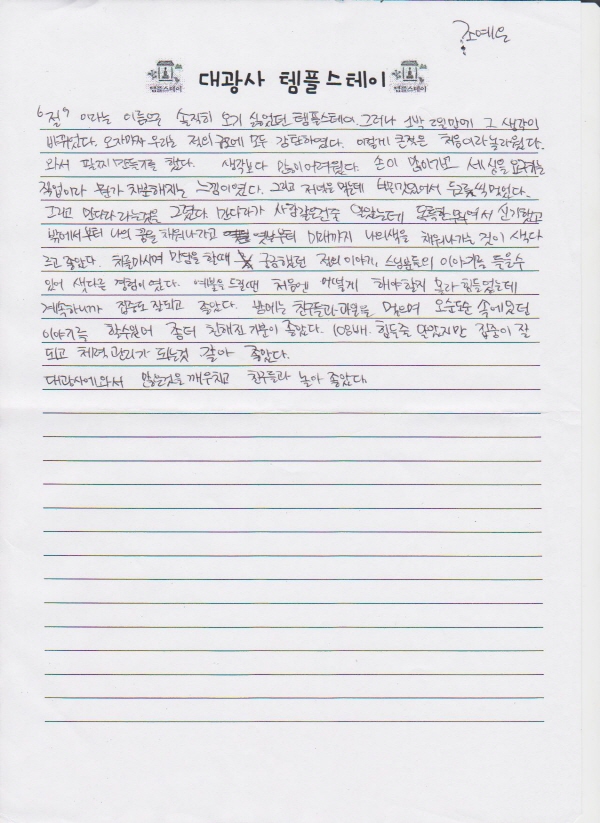 조예은
템플스테이 대광사 템플스테이 템플스테이
"절" 이라는 이름만으로 솔직히 오기 싫었던 템플스테이. 그러나 1박 2일만에 그 생각이
바뀌었다. 오자마자 우리는 절의 규모에 모두 감탄하였다. 이렇게 큰절은 처음이라 놀라웠다.
와서 팔찌 만들기를 했다. 생각보다 많이 어려웠다. 손이 많이가고 세심함을 요구하는
작업이라 뭔가 차분해지는 느낌이였다. 그리고 저녁을 먹는데 맛있어서 두그릇씩 먹었다.
그리고 만다라 라는것을 그렸다. 만다라가 사람같은건줄 알았는데 독특한 무늬여서 신기했고
밖에서부터 나의 꿈을 채워나가고 옛날부터 미래까지 나의색을 채워나가는 것이 색다
르고 좋았다. 차를마시며 만남을 할때 궁금했던 절의이야기, 스님분들의 이야기를 들을수
있어 색다른 경험이였다. 예불을 드릴땐 처음엔 어떻게 해야할지 몰라 힘들었는데
계속하니까 집중도 잘되고 좋았다. 밤에는 친구들과 과일을 먹으며 오순도순 속에있던
이야기를 할수있어 좀더 친해진 기분이 좋았다. 108배. 힘들줄 알았지만 집중이 잘
되고 체력관리가 되는것 같아 좋았다.
대광사에와서 많은것을 깨우치고 친구들과 놀아 좋았다.